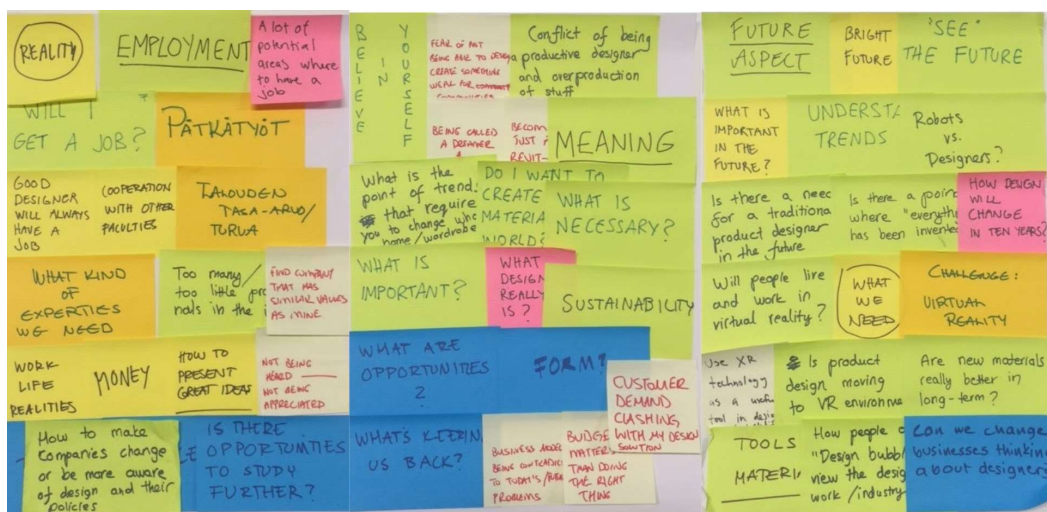 REALITY
EMPLOYMENT
A lot of
potential
areas where
to have a
job
WILL I
GET A JOB?
PÄTKÄTYÖT
GOOD
DESIGNER
WILL ALWAYS
HAVE A
JOB
COOPERATION
WITH OTHER
FACULTIES
TALOUDEN
TASA-ARVO/
TURVA
WHAT KIND
OF
EXPERTIES
WE NEED
Too many/
too little
in the
FIND COMPANY
THAT HAS
SIMILAR VALUES
AS MINE
WORK
LIFE
REALITIES
MONEY
HOW TO
PRESENT
GREAT IDEAS
NOT BEING
HEARD
NOT BEING
APPRECIATED
How to make
companies change
or be more aware
of design and their
policies
IS THERE
OPPORTUNITIES
TO STUDY
FURTHER?
BELIEVE
IN
YOURSELF
FEAR OF NOT
BEING ABLE TO
CREATE SOMETHING
Conflict of being
a productive designer
and overproduction
of stuff
BEING CALLED
A DREAMER
JUST
MEANING
What is the
point of trend
that require
you to change
home/wardrobe
DO I WANT TO
CREATE
MATERIA
WORLD?
WHAT IS
NECESSARY?
WHAT IS
IMPORTANT?
WHAT
DESIGN
REALLY
IS?
SUSTAINABILITY
WHAT ARE
OPPORTUNITIES
?
FORM?
CUSTOMER
DEMAND
CLASHING
WITH MY DESIGN
SOLUTION
WHAT'S KEEPIN
US BACK?
BUSINESS
BEING
TO TODAY'S
PROBLEMS
MATTER
THAN DOING
THE RIGHT
THING
FUTURE
ASPECT
BRIGHT
FUTURE
"SEE"
THE FUTURE
WHAT IS
IMPORTANT
IN THE
FUTURE?
UNDERSTA
TRENDS
Robots
vs.
Designers?
Is there a need
for a traditiona
product designer
in the future
Is there a poin
where "everyth
has been invente
HOW DESIGN
WILL
CHANGE
IN TEN YEARS?
Will people live
and work in
virtual reality?
WHAT
WE
NEED
CHALLENGE:
VIRTUAL
REALITY
Use XR
technology
as a
tool in
Is product
design moving
to VR environme
Are new materials
really better in
long-term?
TOOLS
MATERI
How people
"Design bubbl
view the desig
work/industry
Can we change
businesses thinking
about designers